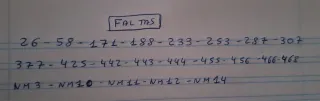 FALTAS
26-58-171-188-233-253-287-307
377-425-442-443-444-455-456-466-468
NM3-NM10-NM11-NM12-NM14